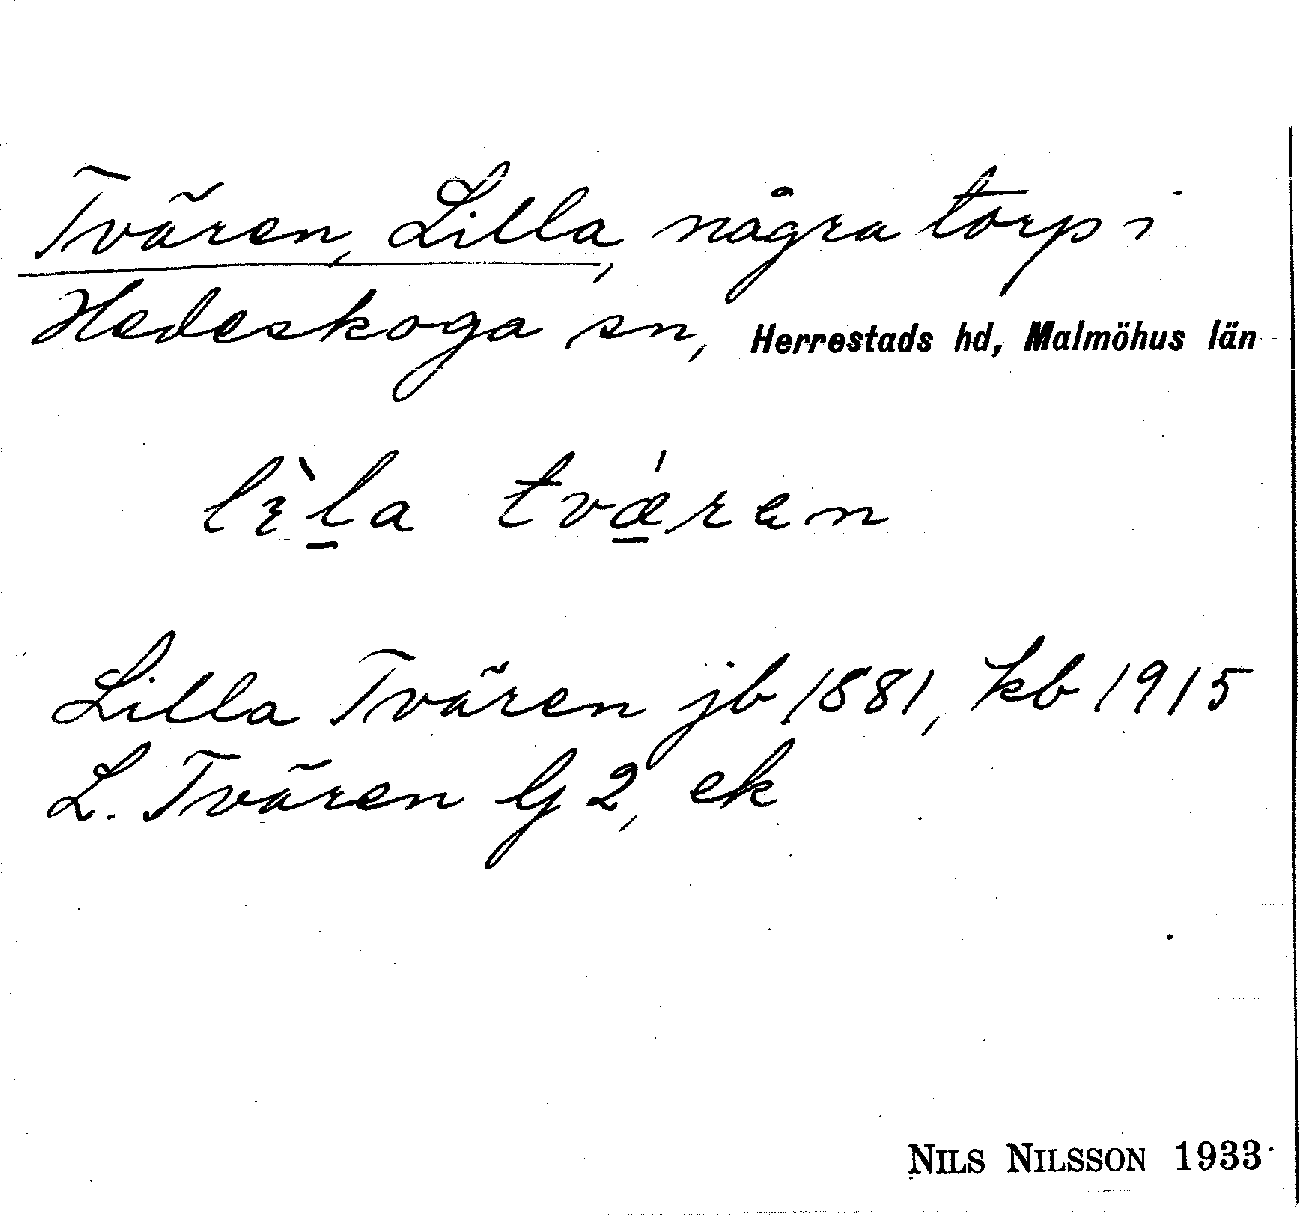 Tvären, Lilla, några torp i
Hedeskoga sn, Herrestads hd, Malmöhus län
lìl̲a tvǽ̲ren
Lilla Tvären jb 1881, kb 1915
L. Tvären G 2, ek
NILS NILSSON 1933